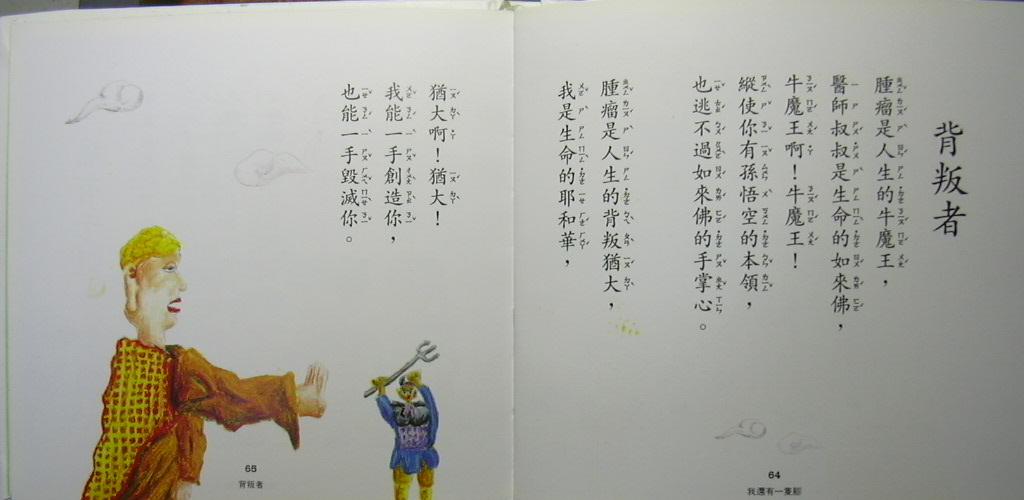 背叛者
腫瘤是人生的牛魔王，
醫師叔叔是生命的如來佛，
牛魔王啊！牛魔王！
縱使你有孫悟空的本領，
也逃不過如來佛的手掌心。
腫瘤是人生的背叛猶大，
我是生命的耶和華，
64
我還有一隻腳
猶大啊！猶大！
我能一手創造你，
也能一手毀滅你。
65
背叛者